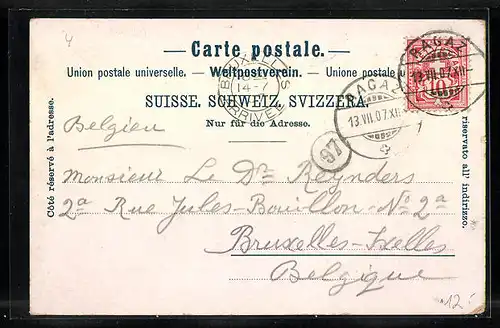 Carte postale.
Union postale universelle. — Weltpostverein. — Unione postale
SUISSE. SCHWEIZ. SVIZZERA.
Nur für die Adresse.
Côté réservé à l'adresse.
riservato all' indirizzo.
BRUXELLES
14-7
ARRIVEE
RAGAZ
13.VII.07.XII
RAGAZ
13.VII.07.XII
10
97
1
Belgien
Monsieur Le Dr Reynders
2a Rue Jules-Bouillon-No 2a
Bruxelles-Ixelles
Belgique
12.-